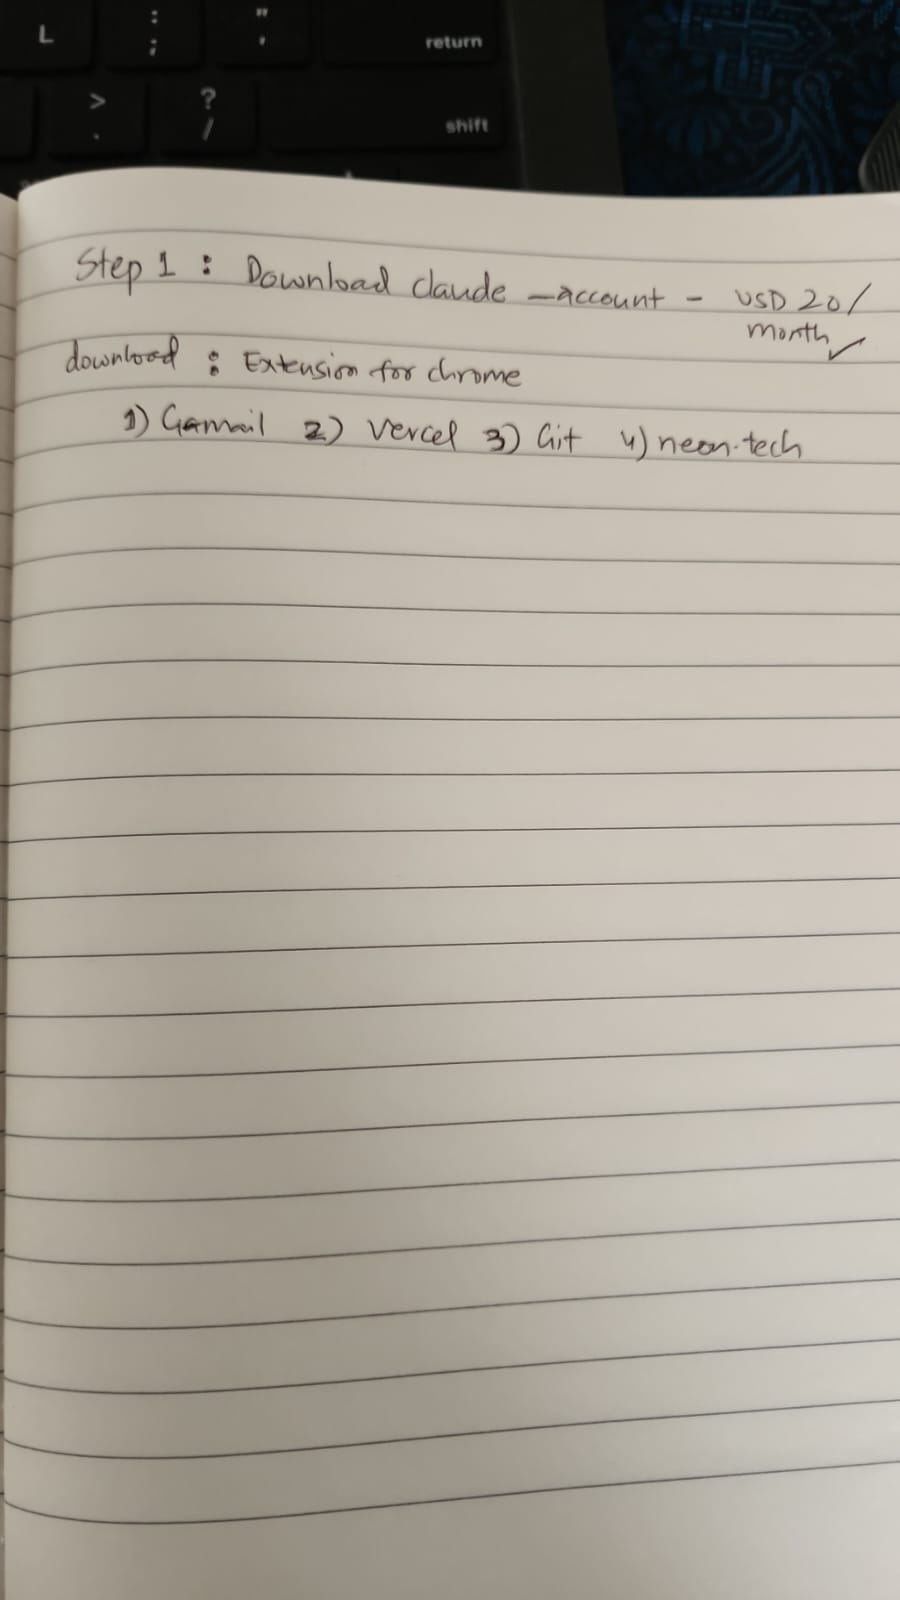 L : ; " ' return
> . ? / shift
Step 1 : Download claude - account - USD 20/
month ✓
download : Extension for chrome
1) Gamail 2) Vercel 3) Git 4) neon.tech